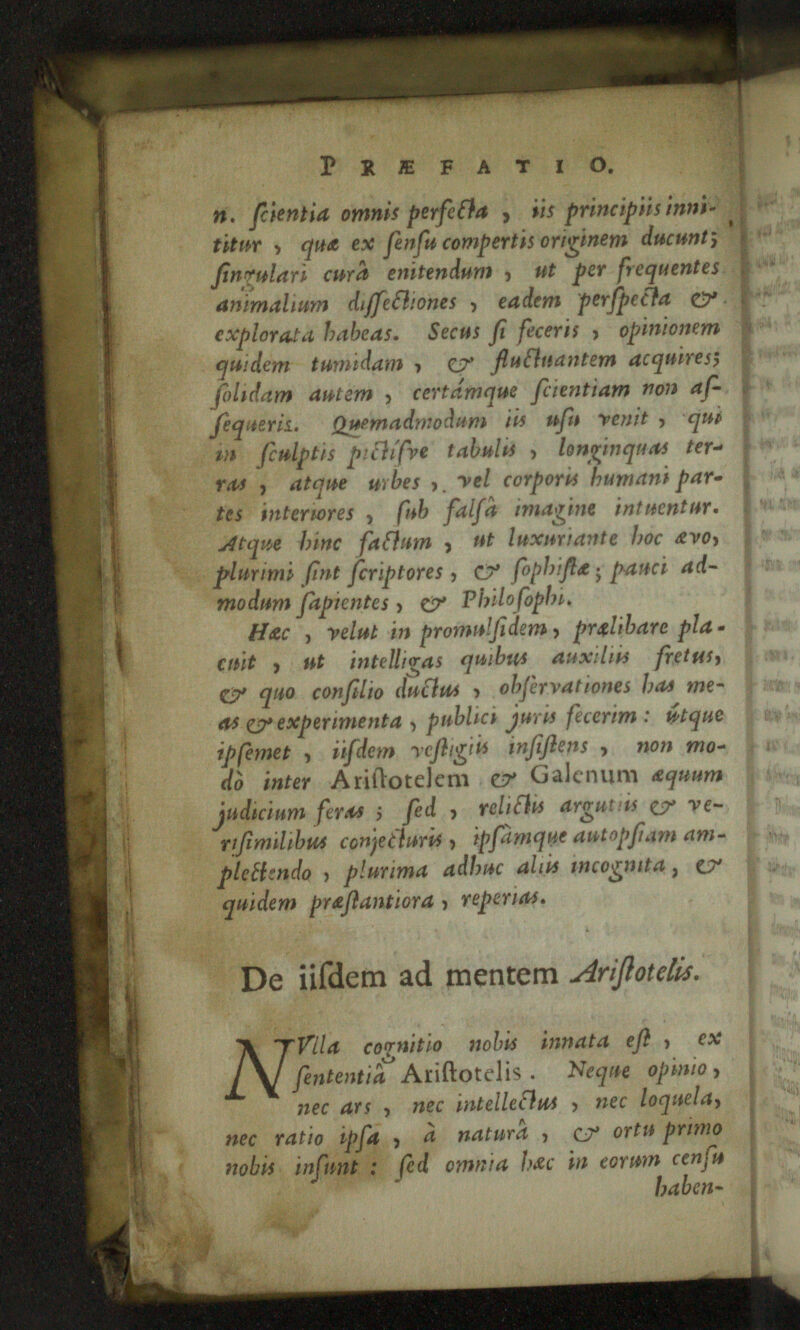 PRÆFATIO.
n. ſcientia omnis perfecta , iis principiis inni-
titur , quæ ex ſenſu compertis originem ducunt;
ſingulari curâ enitendum , ut per frequentes
animalium diſſectiones , eadem perſpecta &
explorata habeas. Secus ſi feceris , opinionem
quidem tumidam , & fluctuantem acquires;
ſolidam autem , certámque ſcientiam non aſ-
ſequeris. Quemadmodum iis uſu venit , qui
in ſculptis pictíſve tabulis , longinquas ter-
ras , atque urbes , vel corporis humani par-
tes interiores , ſub falſâ imagine intuentur.
Atque hinc factum , ut luxuriante hoc ævo,
plurimi ſint ſcriptores , & ſophiſtæ ; pauci ad-
modum ſapientes , & Philoſophi.
Hæc , velut in promulſidem , prælibare pla-
cuit , ut intelligas quibus auxiliis fretus,
& quo conſilio ductus , obſervationes has me-
as & experimenta , publici juris fecerim : utque
ipſemet , iiſdem veſtigiis inſiſtens , non mo-
dò inter Ariſtotelem & Galenum æquum
judicium feras ; ſed , relictis argutiis & ve-
riſimilibus conjecturis , ipſámque autopſiam am-
plectendo , plurima adhuc aliis incognita , &
quidem præſtantiora , reperias.
De iiſdem ad mentem Ariſtotelis.
NVlla cognitio nobis innata eſt , ex
ſententiâ Ariſtotelis . Neque opinio,
nec ars , nec intellectus , nec loquela,
nec ratio ipſa , à naturâ , & ortu primo
nobis inſunt : ſed omnia hæc in eorum cenſu
haben-